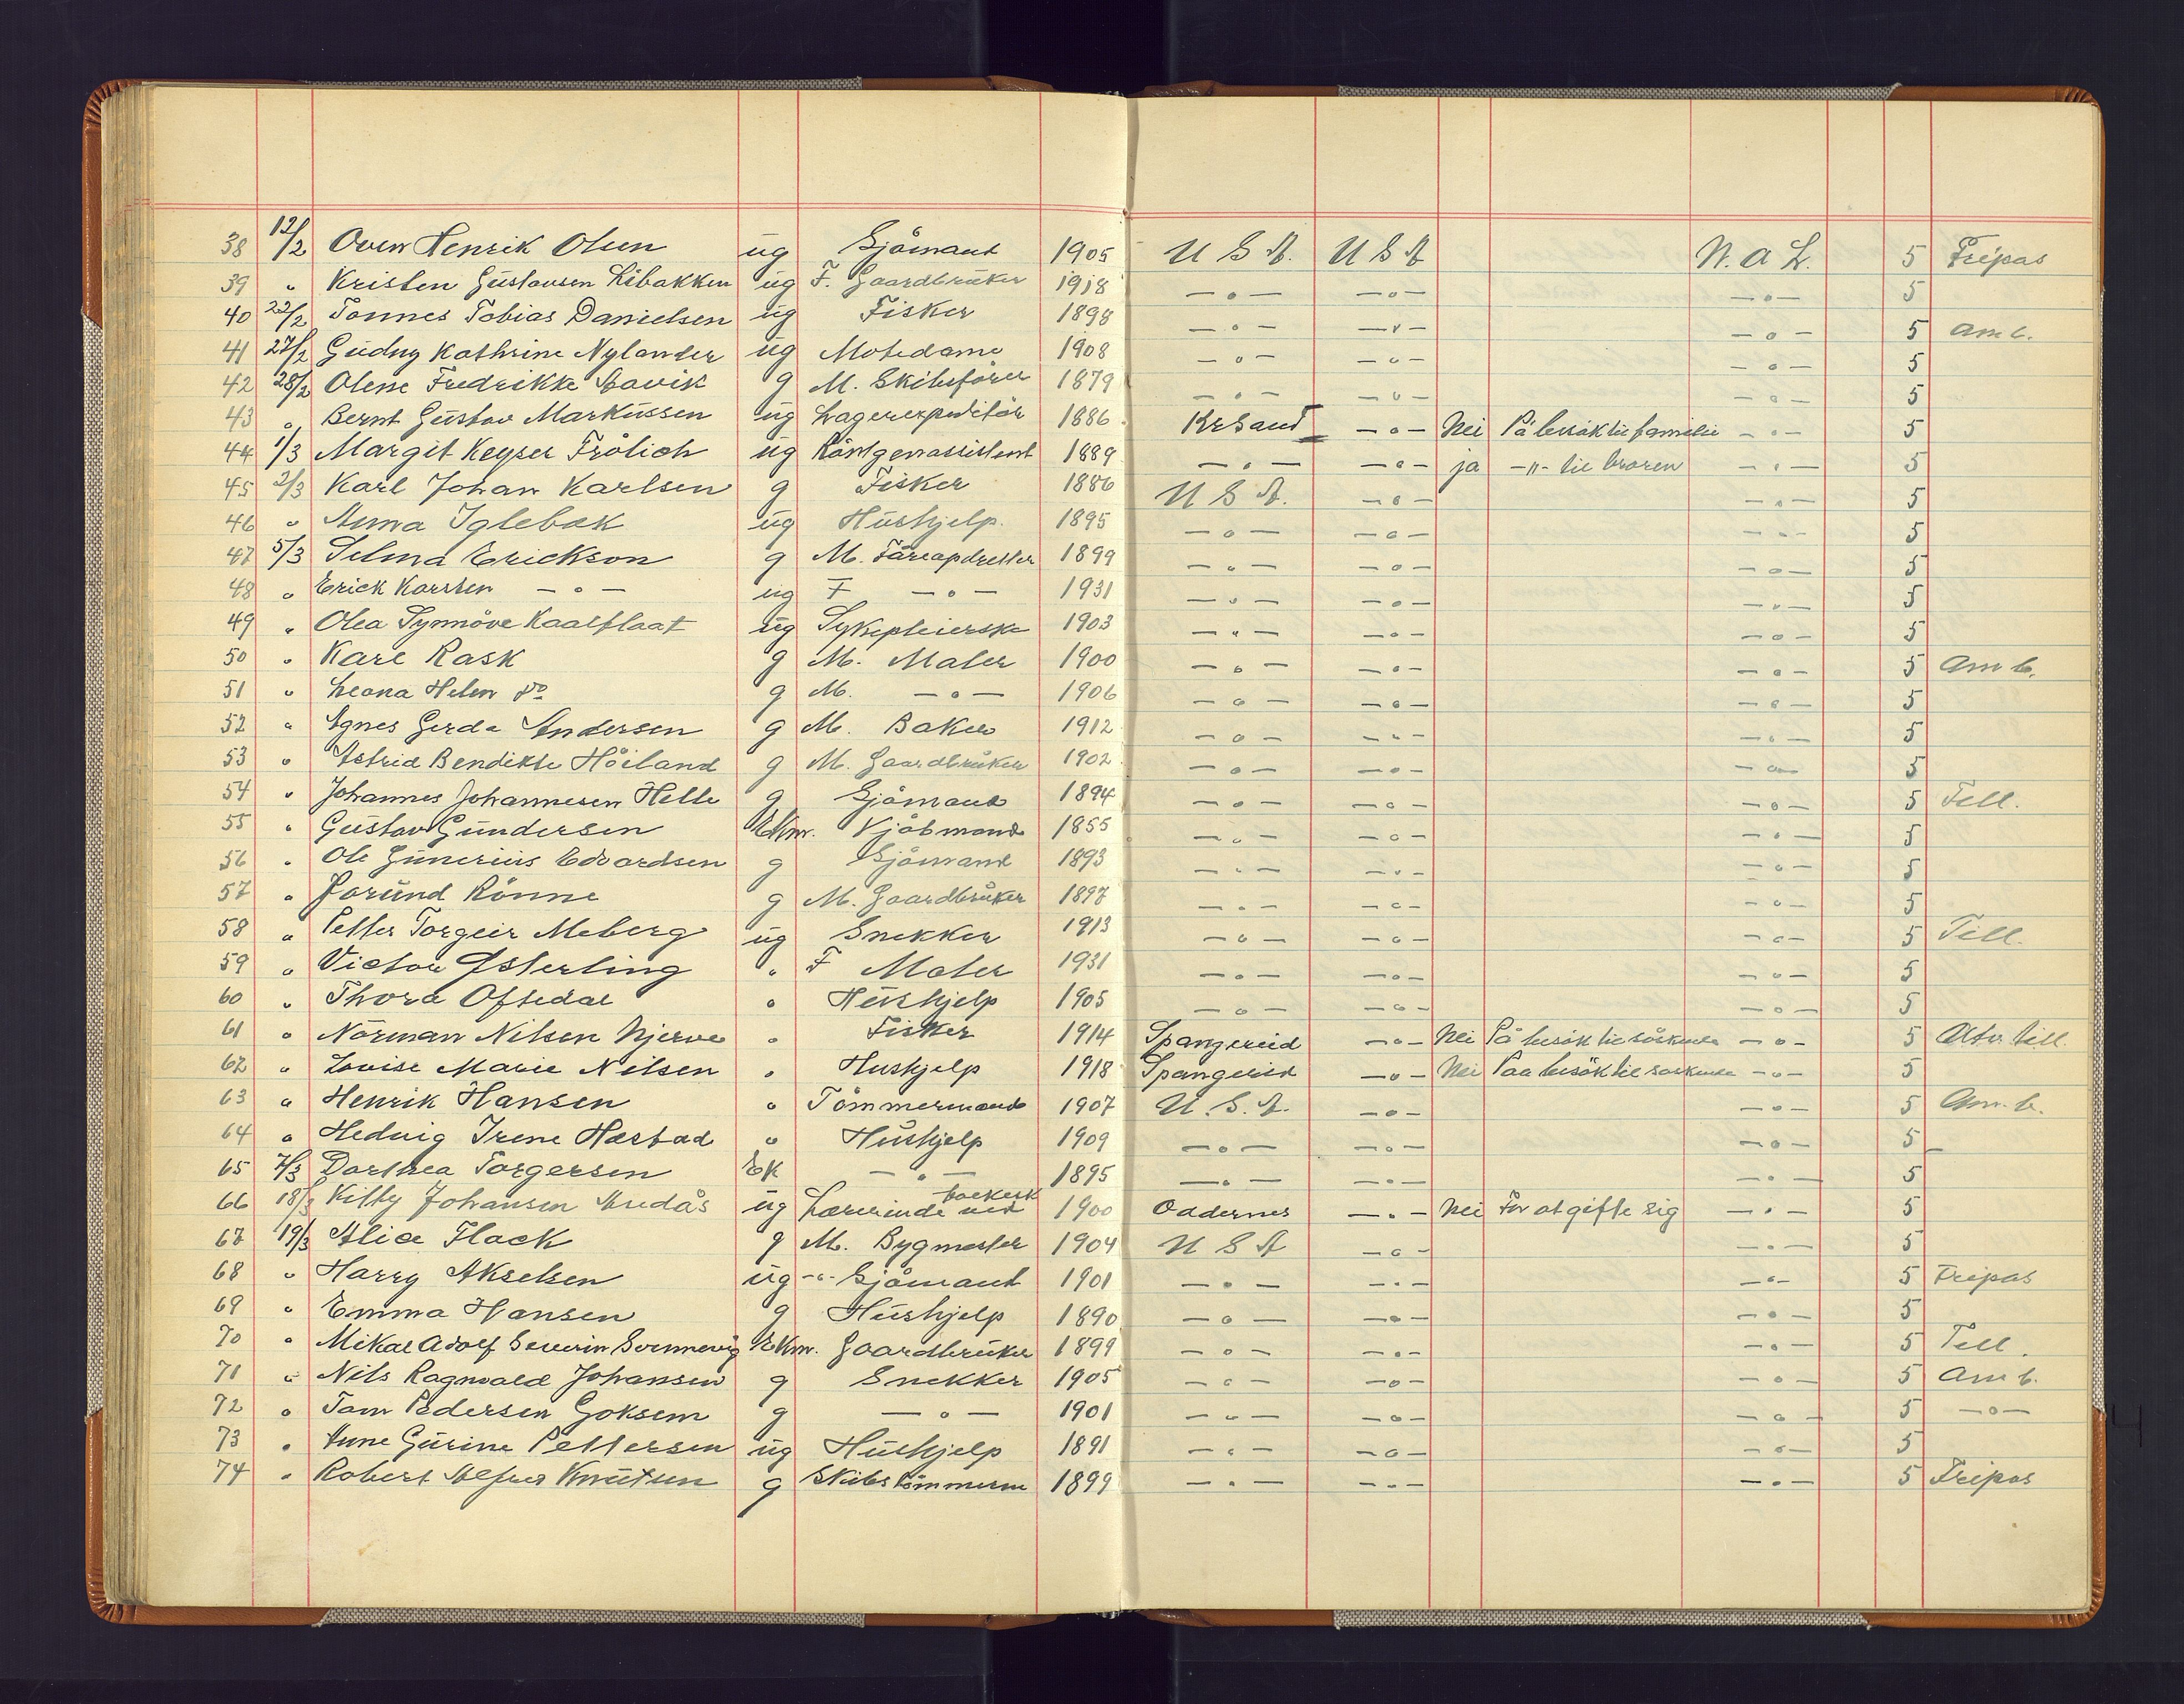 38 12/2 Oven Henrik Olsen ug Sjømand 1905 U S A. U S A N. A L. 5 Fripas
39 " Kristen Gustavsen Libakken ug F. Gaardbruker 1918 —o— —o— —o— 5
40 22/2 Tønnes Tobias Danielsen ug Fisker 1898 —o— —"— —o— 5 Am b.
41 27/2 Gudny Kathrine Nylander ug Motedame 1908 —o— —o— —o— 5
42 28/2 Olene Fredrikke Aavik g M. Skibsfører 1879 —o— —o— —o— 5
43 " Bernt Gustav Markussen ug Lagerexpeditør 1886 KrSand —o— Nei På besøk til familie —o— 5
44 1/3 Margit Keyser Frölich ug Röntgenassistent 1889 —o— —o— ja —"— til broren —o— 5
45 2/3 Karl Johan Karlsen g Fisker 1886 U S A. —o— —o— 5
46 " Anna Iglebæk ug Hushjelp. 1895 —o— —o— —o— 5
47 5/3 Selma Erickson g M. 1899 —o— —o— —o— 5
48 " Erick Karsten —o— ug F —o— 1931 —o— —o— —o— 5
49 " Olea Synnöve Kaasflaat ug Sykepleierske 1903 —"— —o— —o— 5
50 " Karl Rask g M. Maler 1900 —o— —o— —o— 5 Am b.
51 " Leona Helen do g M. —o— 1906 —o— —o— —o— 5
52 " Agnes Gerda Andersen g M. Baker 1912 —o— —o— —o— 5
53 " Astrid Bendikte Höiland g M. Gaardbruker 1902 —o— —o— —o— 5
54 " Johannes Johannesen Helle g Sjömand 1894 —o— —o— —o— 5 Tell.
55 " Gustav Gundersen Ekm. Kjöbmand 1855 —o— —o— —o— 5
56 " Ole Gunerius Edvardsen g Sjömand 1893 —o— —o— —o— 5
57 " Jorund Rönne g M. Gaardbruker 1897 —o— —o— —o— 5
58 " Petter Torgeir Meberg ug Snekker 1913 —o— —o— —o— 5 Tell.
59 " Victor Østerling " F Maler 1931 —o— —o— —o— 5
60 " Thora Oftedal " Hushjelp 1905 —o— —o— —o— 5
61 " Norman Nilsen Njerve " Fisker 1914 Spangereid —o— Nei På besök til söskende —o— 5 Utv. till.
62 " Lovise Marie Nilsen " Hushjelp 1918 Spangereid —o— Nei Paa besök til søskende —o— 5
63 " Henrik Hansen " Tömmermand 1907 U. S. A. —o— —o— 5 Am. b.
64 " Hedvig Irene Hæstad " Hushjelp 1909 —o— —o— —o— 5
65 7/3 Dorthea Torgersen Ek —"— 1895 —o— —o— —o— 5
66 18/3 Kitty Johansen Aredås ug Lærerinde ved 1900 Oddernes —o— Nei For at gifte sig —o— 5
67 19/3 Alice Flack g M. Bygmester 1904 U S A —o— —o— 5
68 " Harry Akselsen ug —"— Sjömand 1901 —o— —o— —o— 5 Fripas
69 " Emma Hansen g Hushjelp 1890 —o— —o— —o— 5
70 " Mikal Adolf Severin Ekm. Gaardbruker 1899 —o— —o— —o— 5 Tell.
71 " Nils Ragnvald Johansen g Snekker 1905 —o— —o— —o— 5 Am b.
72 " Tom Pedersen Goksem g —o— 1901 —o— —o— —o— 5 —o—
73 " Anne Gurine Pettersen ug Hushjelp 1891 —o— —o— —o— 5
74 " Robert Alfred Knutsen g Skibstömmerm 1899 —o— —o— —o— 5 Fripas